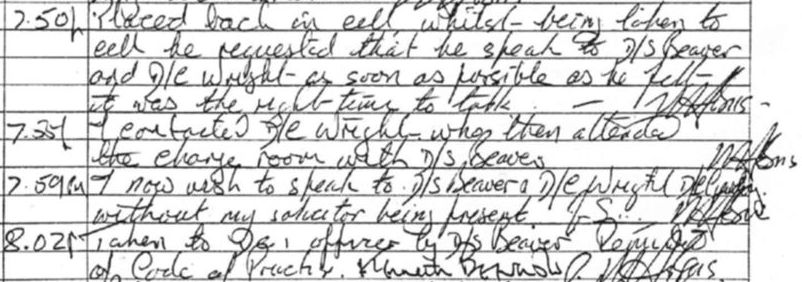 7.50p Placed back in cell, whilst being taken to
cell he requested that he speak to D/S Beaver
and D/C Wright as soon as possible as he felt
it was the right time to talk. —
7.55p I contacted D/C Wright who then attended
the charge room with D/S Beaver
7.59pm I now wish to speak to D/S Beaver & D/C Wright
without my solicitor being present
8.02p Taken to officer by D/S Beaver Reminded
of Code of Practice. Kenneth